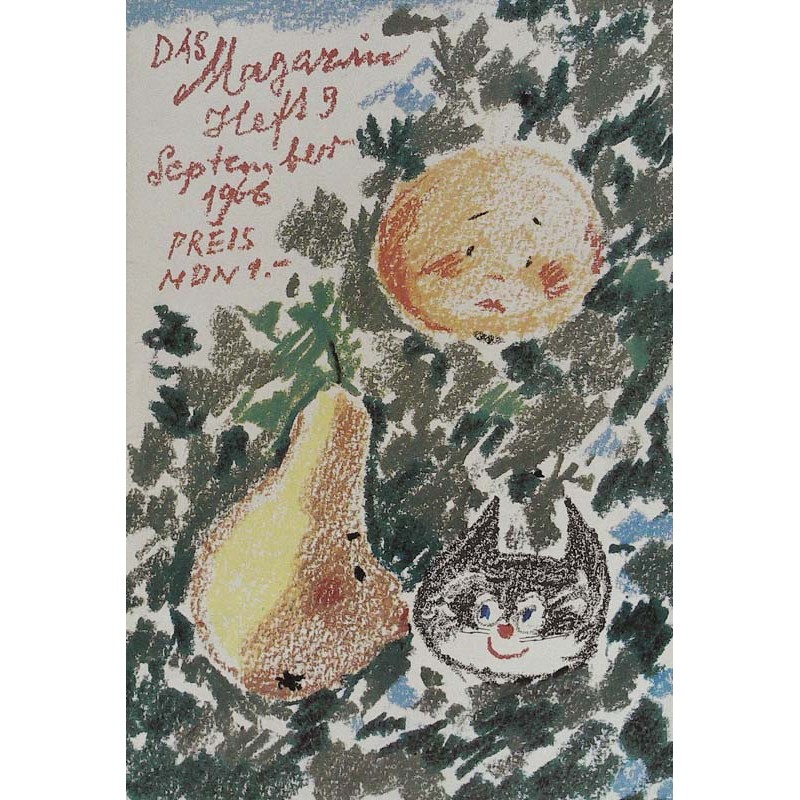 DAS Magazin
Heft 9
September
1966
PREIS
MDN 1.-